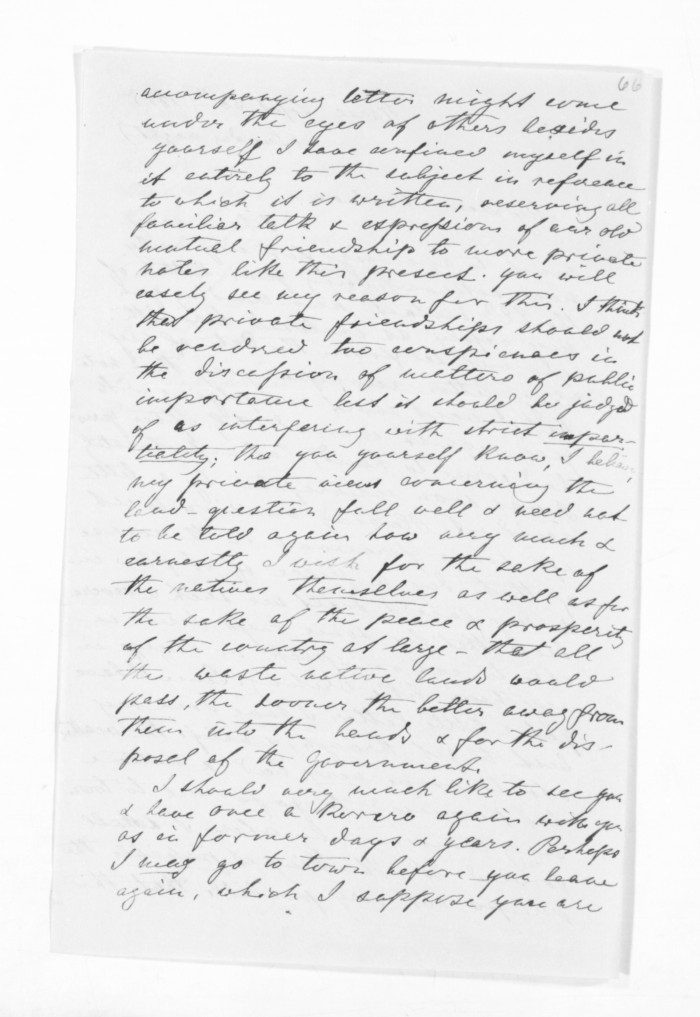 66
accompanying letter might come
under the eyes of others besides
yourself I have confined myself in
it entirely to the subject in reference
to which it is written, reserving all
familiar talk & expressions of our old
mutual friendship to more private
notes like this present. you will
easely see my reason for this. I think
that private friendships should not
be rendred too conspicuous in
the discussion of matters of public
importance lest it should be judged
of as interfering with strict impar-
tiality; tho you yourself know, I believe,
my private views concerning the
land-question full well & need not
to be told again how very much &
earnestly I wish for the sake of
the natives themselves as well as for
the sake of the peace & prosperity
of the country at large - that all
the waste native lands would
pass, the sooner the better away from
them into the hands & for the dis-
posal of the Government.
I should very much like to see you
& have once a Korero again with you
as in former days & years. Perhaps
I may go to town before you leave
again, which I suppose you are